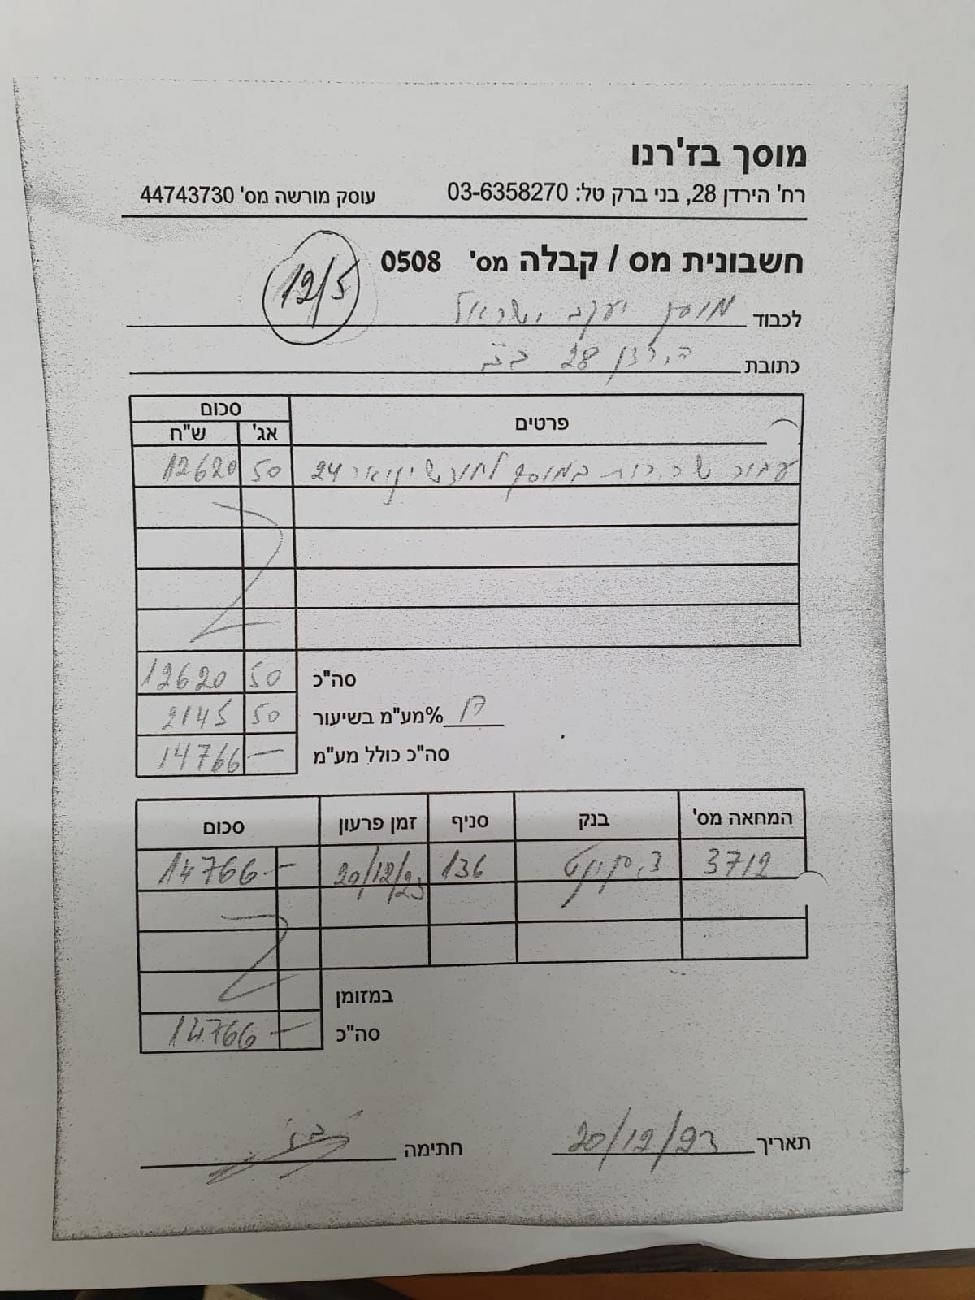 מוסך בז'רנו
רח' הירדן 28, בני ברק טל: 03-6358270 עוסק מורשה מס' 44743730
חשבונית מס / קבלה מס' 0508
12/5
לכבוד מוסך יעקב ישראל
כתובת הירדן 28 בב
פרטים סכום
אג' ש"ח
עבור שכירות במוסך לחודש ינואר 24 50 12620
סה"כ 50 12620
%מע"מ בשיעור 17 50 2145
סה"כ כולל מע"מ - 14766
המחאה מס' בנק סניף זמן פרעון סכום
3712 דיסקונט 136 20/12/23 14766-
במזומן
סה"כ 14766-
תאריך 20/12/23 חתימה